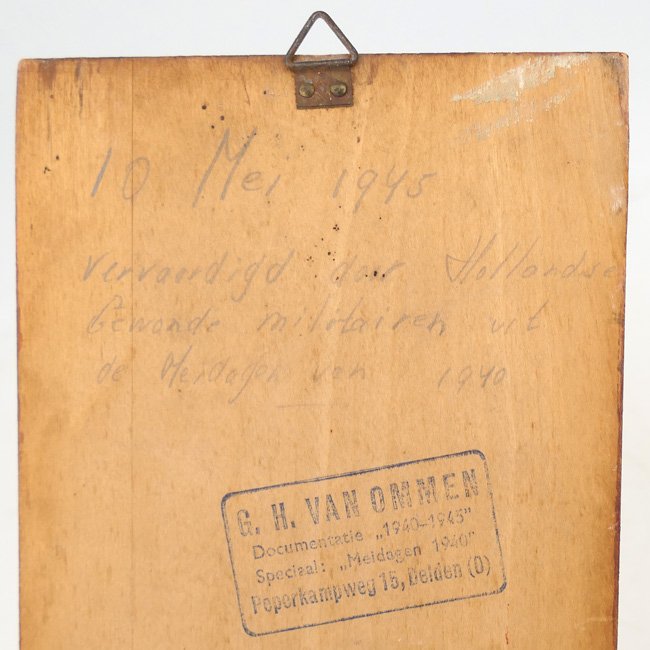 10 Mei 1945
vervaardigd door Hollandse
Gewonde militairen uit
de Meidagen van 1940
G. H. VAN OMMEN
Documentatie „1940-1945”
Speciaal: „Meidagen 1940”
Peperkampweg 15, Delden (O)